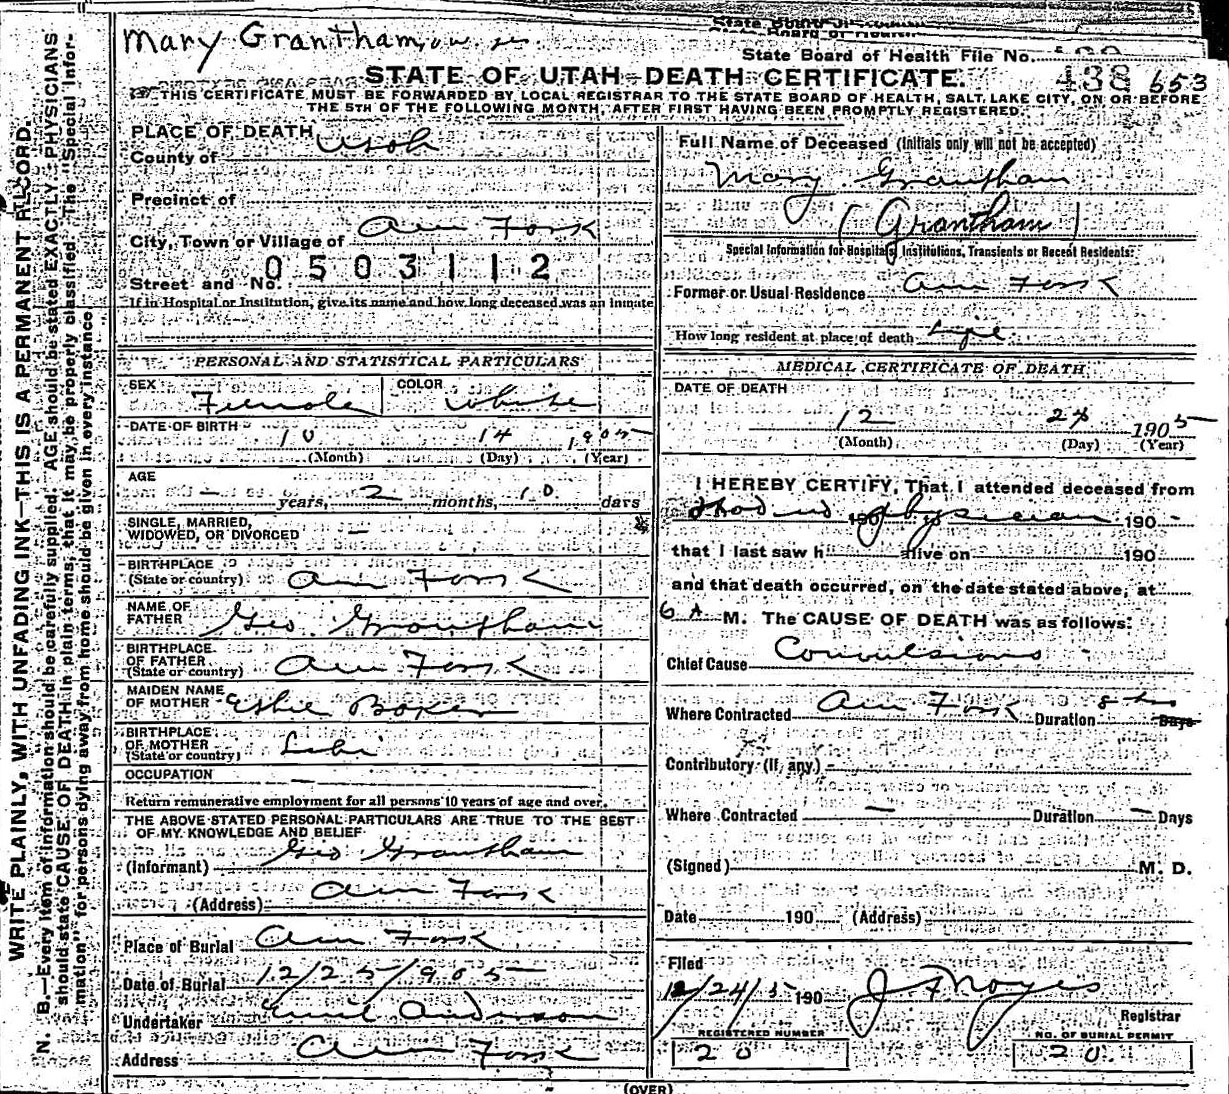 Mary Grantham
State Board of Health File No. 438 653
STATE OF UTAH—DEATH CERTIFICATE.
THIS CERTIFICATE MUST BE FORWARDED BY LOCAL REGISTRAR TO THE STATE BOARD OF HEALTH, SALT LAKE CITY, ON OR BEFORE
THE 5TH OF THE FOLLOWING MONTH, AFTER FIRST HAVING BEEN PROMPTLY REGISTERED.
WRITE PLAINLY, WITH UNFADING INK—THIS IS A PERMANENT RECORD.
N. B.—Every item of information should be carefully supplied. AGE should be stated EXACTLY. PHYSICIANS
should state CAUSE OF DEATH in plain terms, that it may be properly classified. The "Special Infor-
mation" for persons dying away from home should be given in every instance.
PLACE OF DEATH
County of Utah
Precinct of
City, Town or Village of Am Fork
Street and No. 0503112
If in Hospital or Institution, give its name and how long deceased was an inmate
PERSONAL AND STATISTICAL PARTICULARS
SEX Female COLOR White
DATE OF BIRTH 10 14 1905
(Month) (Day) (Year)
AGE
— years, 2 months, 10 days
SINGLE, MARRIED,
WIDOWED, OR DIVORCED —
BIRTHPLACE
(State or country) Am Fork
NAME OF
FATHER Geo Grantham
BIRTHPLACE
OF FATHER
(State or country) Am Fork
MAIDEN NAME
OF MOTHER
BIRTHPLACE
OF MOTHER
(State or country) Lehi
OCCUPATION —
Return remunerative employment for all persons 10 years of age and over.
THE ABOVE STATED PERSONAL PARTICULARS ARE TRUE TO THE BEST
OF MY KNOWLEDGE AND BELIEF
(Informant) Geo Grantham
(Address) Am Fork
Place of Burial Am Fork
Date of Burial 12/25/905
Undertaker Anderson
Address Am Fork
Full Name of Deceased (Initials only will not be accepted)
Mary Grantham
(Grantham)
Special Information for Hospitals, Institutions, Transients or Recent Residents:
Former or Usual Residence Am Fork
How long resident at place of death Life
MEDICAL CERTIFICATE OF DEATH
DATE OF DEATH
12 24 1905
(Month) (Day) (Year)
I HEREBY CERTIFY, That I attended deceased from
had no 190 physician 190 -
that I last saw h alive on 190
and that death occurred, on the date stated above, at
6 A M. The CAUSE OF DEATH was as follows:
Chief Cause Convulsions
Where Contracted Am Fork Duration 8 hrs Days
Contributory (if any) -
Where Contracted — Duration — Days
(Signed) M. D.
Date 190 (Address)
Filed
12/24/5 190 J F Noyes
Registrar
REGISTERED NUMBER
20
NO. OF BURIAL PERMIT
20
(OVER)